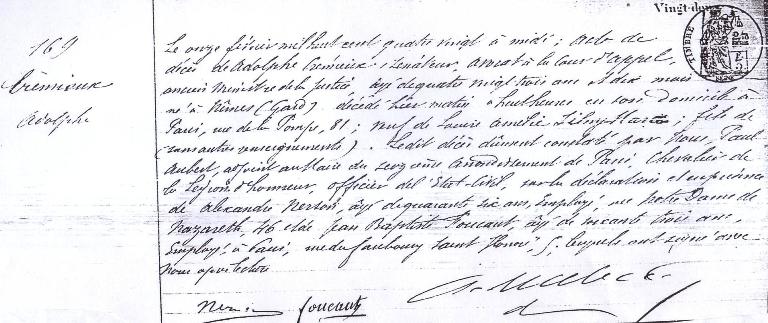 Vingt-deux
TIMBRE
169
Crémieux
Adolphe
Le onze février mil huit cent quatre vingt à midi ; acte de
décès de Adolphe Crémieux, Sénateur, avocat à la Cour d'appel,
ancien Ministre de la Justice âgé de quatre vingt trois ans et dix mois
né à Nîmes (Gard) décédé hier matin à huit heures en son domicile à
Paris, rue de la Pompe, 81 ; veuf de Louise Amélie ; fils de
(sans autres renseignements). Ledit décès dûment constaté par Nous, Paul
Aubert, adjoint au Maire du seizième arrondissement de Paris, Chevalier de
la Légion d'honneur, officier de l'Etat-Civil, sur la déclaration et en présence
de Alexandre Nerson, âgé de quarante six ans, Employé, rue Notre Dame de
Nazareth, 46 et de Jean Baptiste Foucaut, âgé de soixante trois ans,
Employé à Paris, rue du faubourg Saint Honoré, 5, lesquels ont signé avec
Nous après lecture
Foucaut